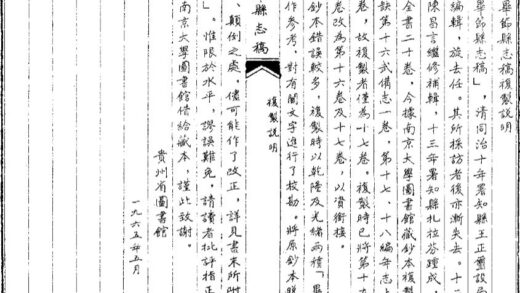 畢節縣志稿複製說明
畢節縣志稿」，清同治十年署知縣王正璽設局
編輯，旋去任。其所採訪者後亦漸失去。十二
陳昌言繼修補輯，十三年署知縣扎拉芬踵成，
全書二十卷，今據南京大學圖書館藏鈔本複製
缺第十六武備志一卷，第十七、十八編年志上
卷，故複製者僅為十七卷。複製時已將第十九
卷改為第十六卷及十七卷，以資銜接。
鈔本錯誤較多，複製時以乾隆及光緒兩種「畢
作參考，對有關文字進行了校勘。將原鈔本脫
縣志稿
複製說明
、顛倒之處，儘可能作了改正，詳見書末所附
」。惟限於水平，謬誤難免，請讀者批評指正
南京大學圖書館借給藏本，謹此致謝。
貴州省圖書館
一九六五年五月